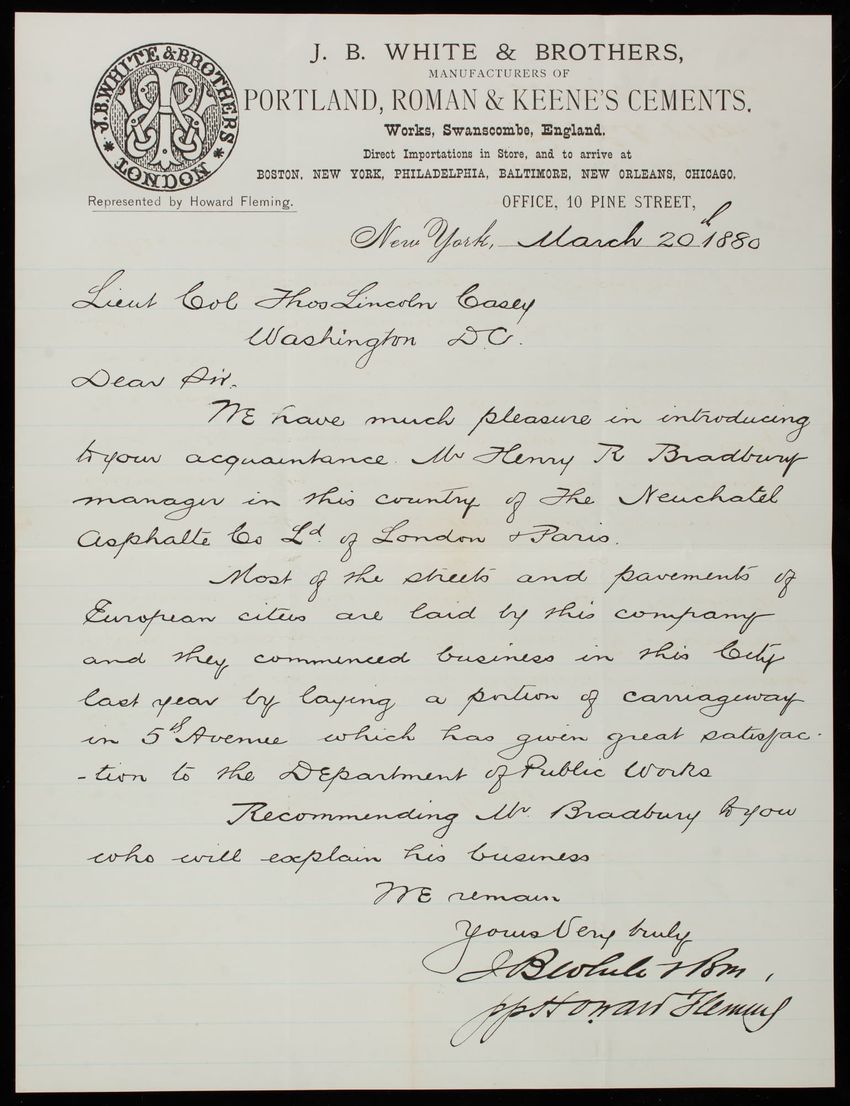 J. B. WHITE & BROTHERS,
MANUFACTURERS OF
PORTLAND, ROMAN & KEENE'S CEMENTS.
Works, Swanscombe, England.
Direct Importations in Store, and to arrive at
BOSTON, NEW YORK, PHILADELPHIA, BALTIMORE, NEW ORLEANS, CHICAGO.
J.B. WHITE & BROTHERS
* LONDON *
Represented by Howard Fleming.
OFFICE, 10 PINE STREET,
New York, March 20th 1880
Lieut Col Thos Lincoln Casey
Washington D.C.
Dear Sir.
WE have much pleasure in introducing
to your acquaintance. Mr Henry R Bradbury
manager in this country of The Neuchatel
Asphalte Co Ld. of London & Paris.
Most of the streets and pavements of
European cities are laid by this company
and they commenced business in this City
last year by laying a portion of carriageway
in 5th Avenue which has given great satisfac-
-tion to the DEpartment of Public Works
Recommending Mr. Bradbury to you
who will explain his business
WE remain
Yours Very truly
J B White & Bros,
pp Howard Fleming